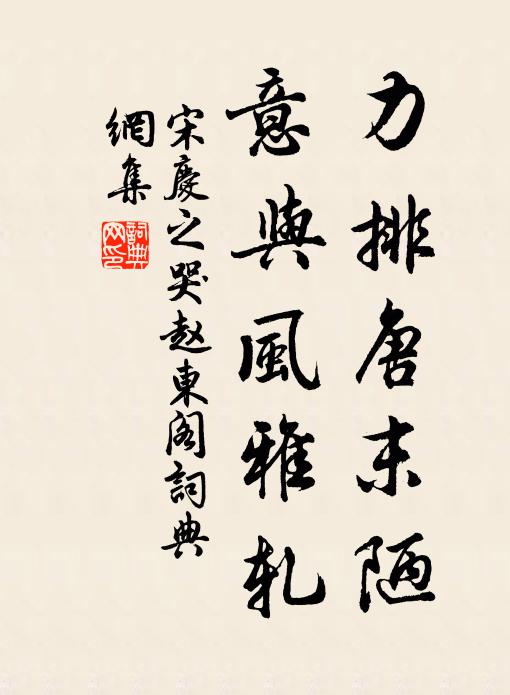 力排唐末陋
意與風雅軋
宋慶之哭赵東阁詞典
網集
詞典网印